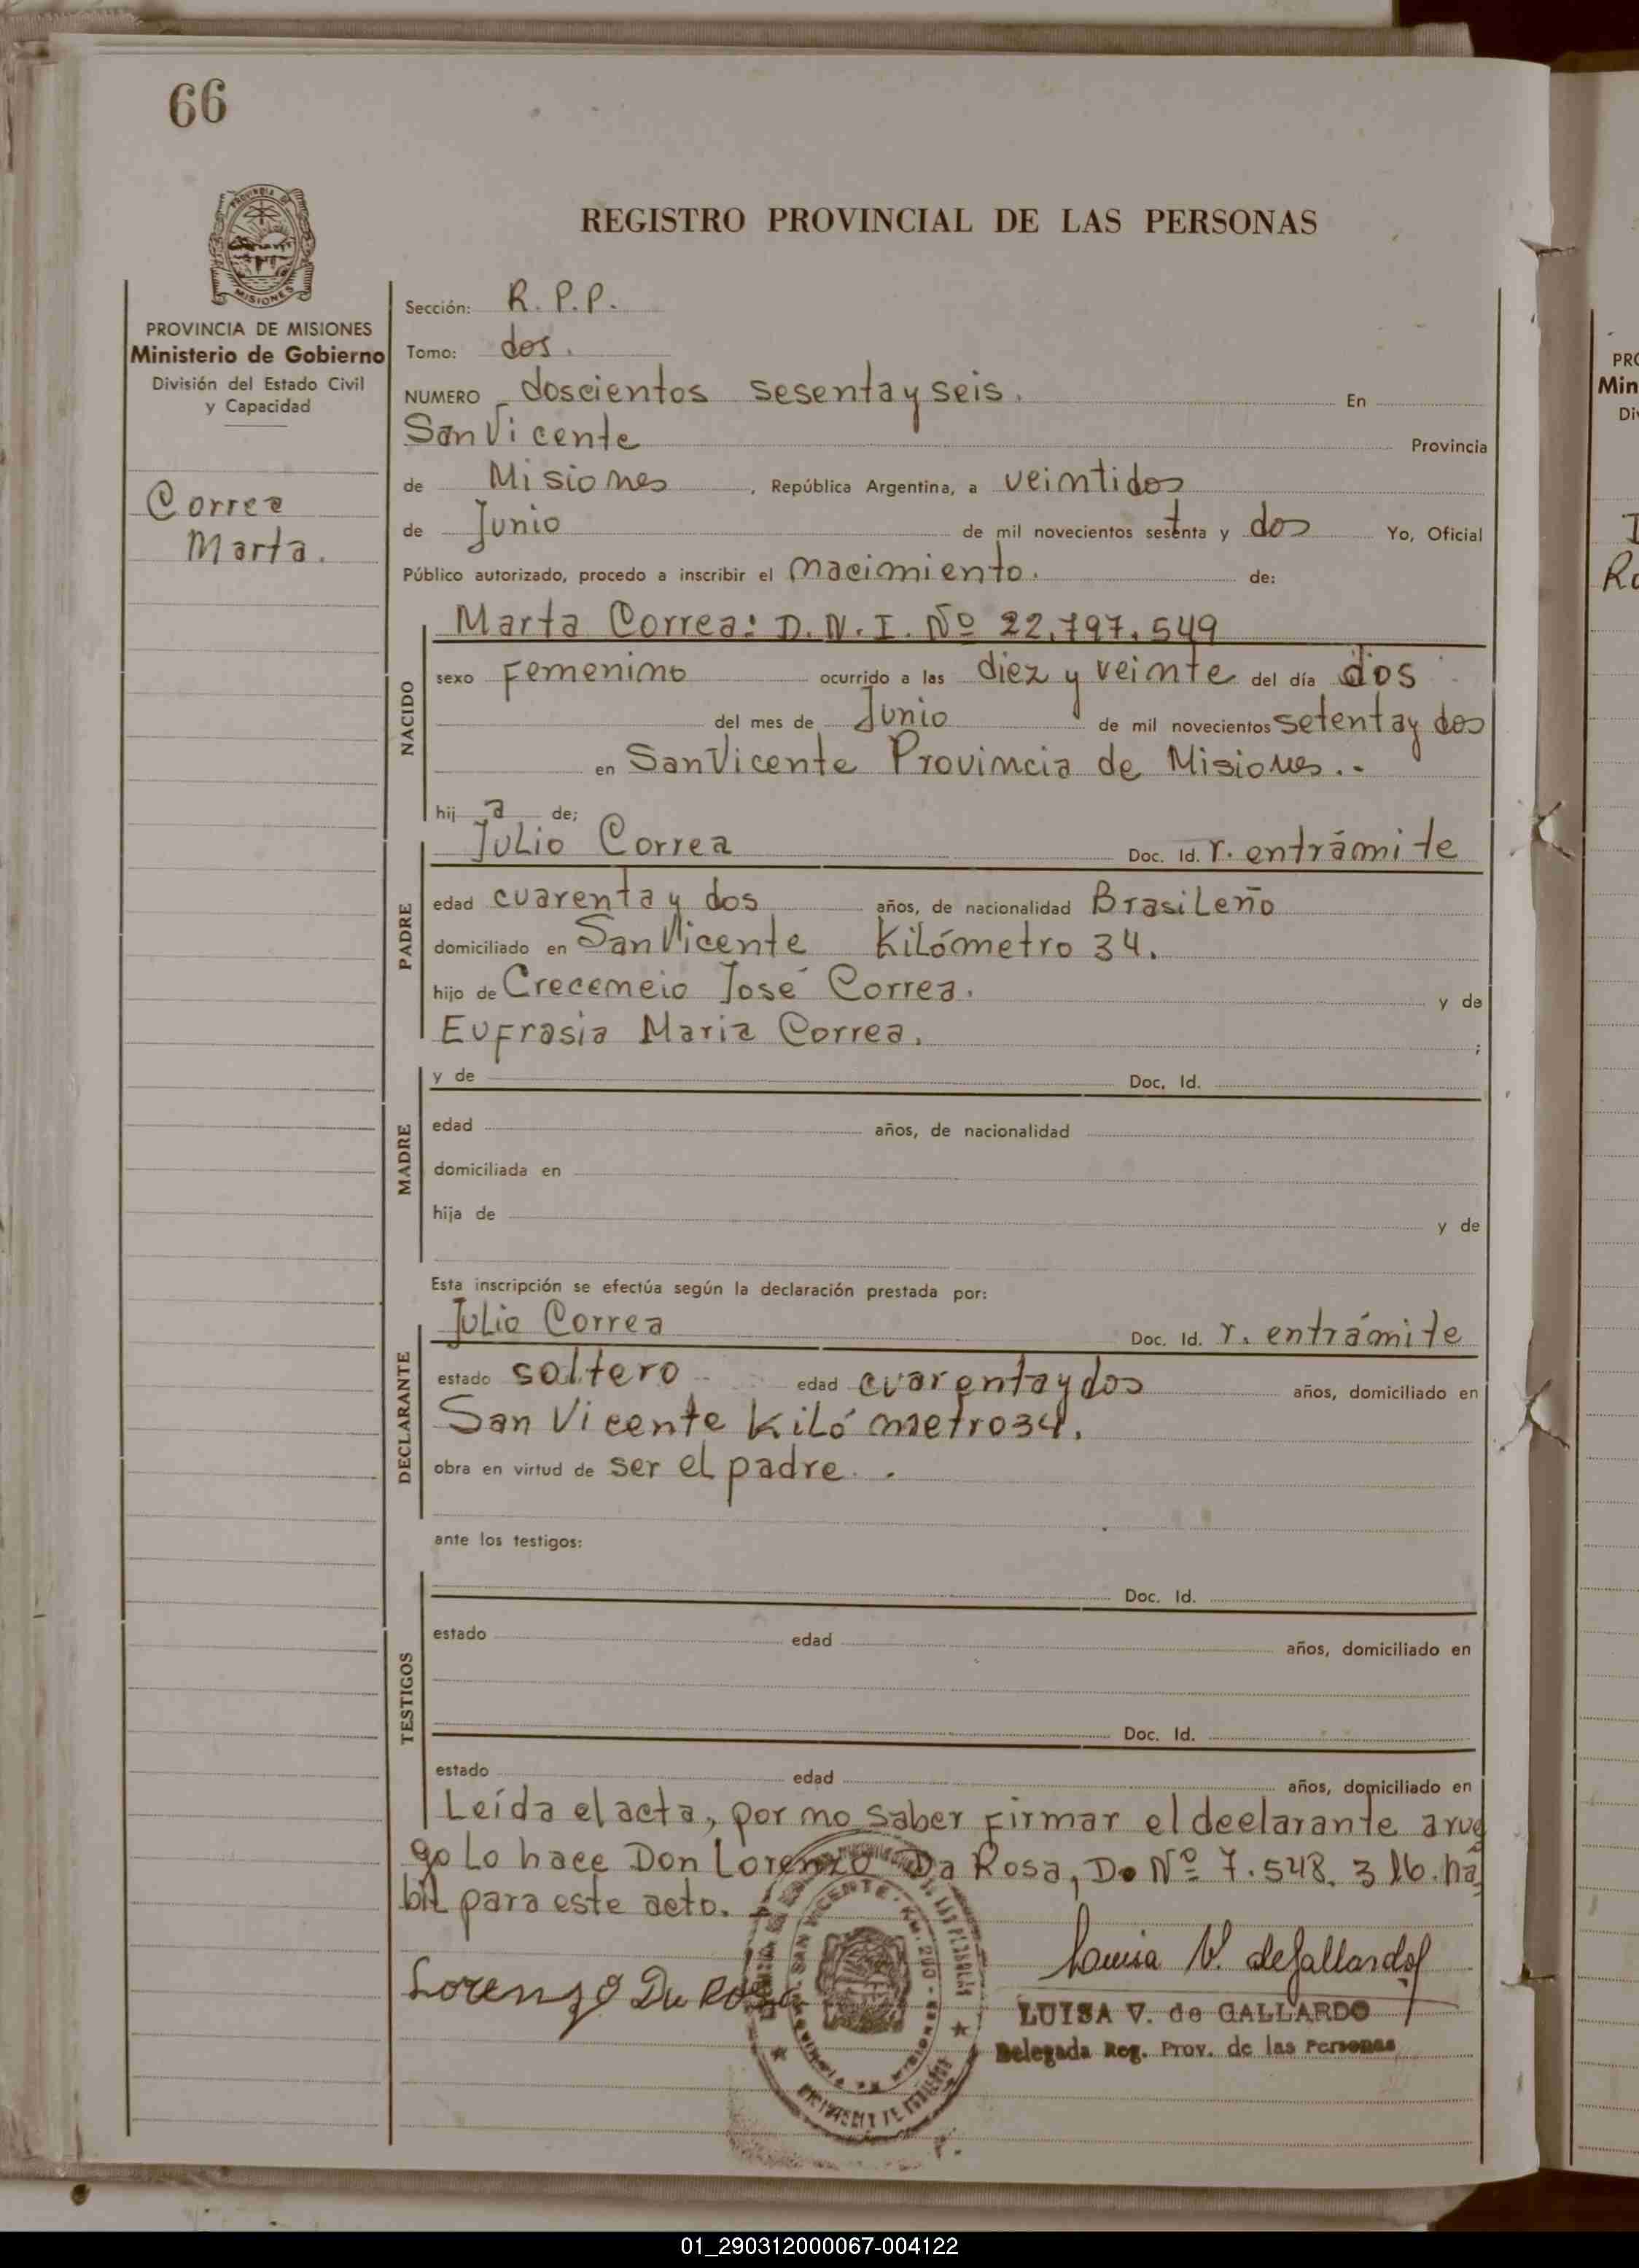 66
PROVINCIA DE
MISIONES
REGISTRO PROVINCIAL DE LAS PERSONAS
PROVINCIA DE MISIONES
Ministerio de Gobierno
División del Estado Civil
y Capacidad
Correa
Marta.
Sección: R. P. P.
Tomo: dos.
NUMERO doscientos sesenta y seis. En
San Vicente Provincia
de Misiones, República Argentina, a veintidos
de Junio de mil novecientos setenta y dos Yo, Oficial
Público autorizado, procedo a inscribir el nacimiento. de:
NACIDO
Marta Correa: D. N. I. Nº 22.797.549
sexo Femenino ocurrido a las diez y veinte del día dos
del mes de Junio de mil novecientos setenta y dos
en San Vicente Provincia de Misiones..-
hij a de;
PADRE
Julio Correa Doc. Id. r. entrámite
edad cuarenta y dos años, de nacionalidad Brasileño
domiciliado en San Vicente Kilómetro 34.
hijo de Crecemeio José Correa. y de
Eufrasia Maria Correa. ;
MADRE
y de Doc. Id.
edad años, de nacionalidad
domiciliada en
hija de y de
Esta inscripción se efectúa según la declaración prestada por:
DECLARANTE
Julio Correa Doc. Id. r. entrámite
estado soltero edad cuarenta y dos años, domiciliado en
San Vicente Kilómetro 34.
obra en virtud de ser el padre. .
ante los testigos:
TESTIGOS
Doc. Id.
estado edad años, domiciliado en
Doc. Id.
estado edad años, domiciliado en
Leída el acta, por no saber firmar el declarante a rue
go lo hace Don Lorenzo Da Rosa, D. Nº 7.548.316. há
bil para este acto.
SAN VICENTE - KM.
Lorenzo Da Rosa
Luisa V. de Gallardo
LUISA V. de GALLARDO
Delegada Reg. Prov. de las Personas
PRO
Min
Div
01_290312000067-004122